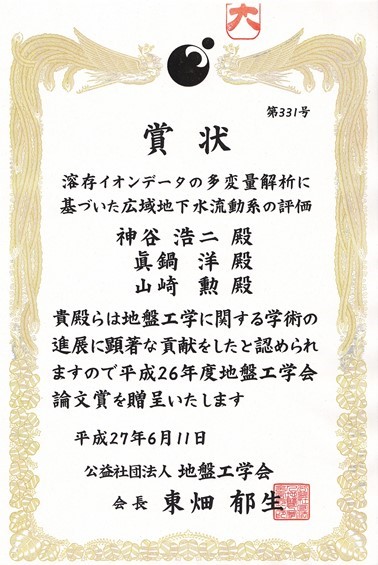 第331号
賞状
溶存イオンデータの多変量解析に
基づいた広域地下水流動系の評価
神谷 浩二 殿
眞鍋 洋 殿
山崎 勲 殿
貴殿らは地盤工学に関する学術の
進展に顕著な貢献をしたと認められ
ますので平成26年度地盤工学会
論文賞を贈呈いたします
平成27年6月11日
公益社団法人 地盤工学会
会長 東畑 郁生